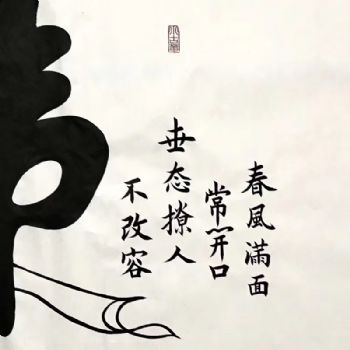 春風滿面
常開口
世态撩人
不改容